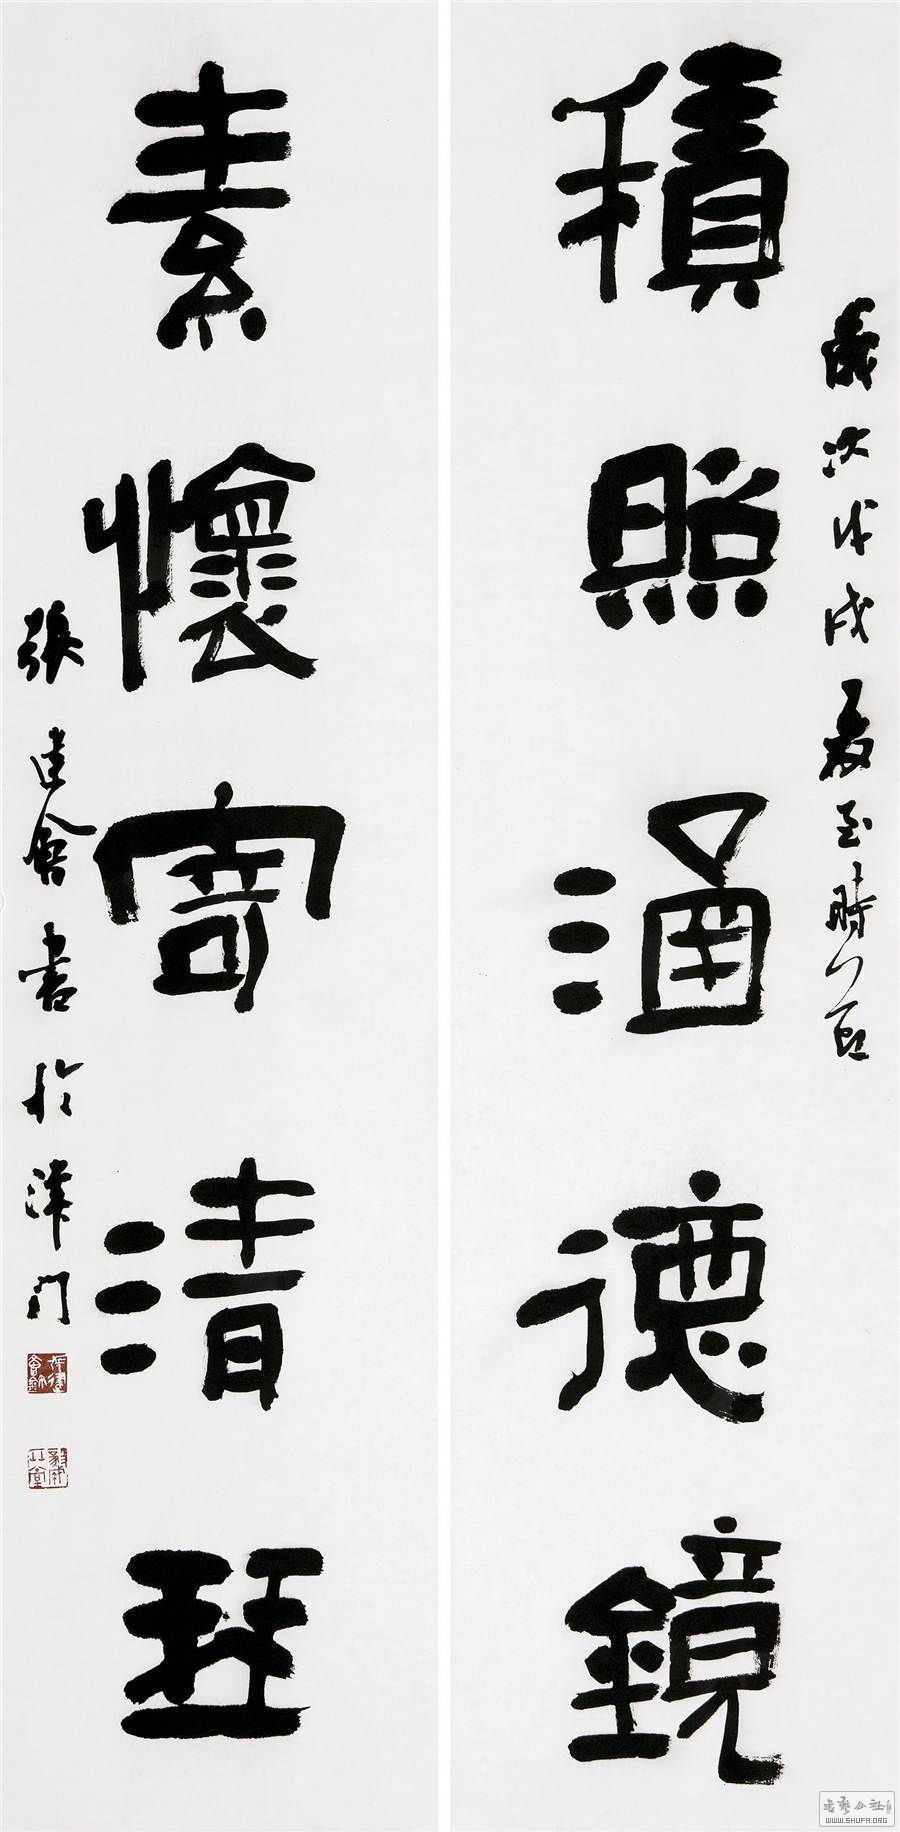 歲次戊戌夏至時節
積照涵德鏡
素懷寄清琴
張建會書於津門
張建會鉨
書藝公社
WWW.SHUFA.ORG